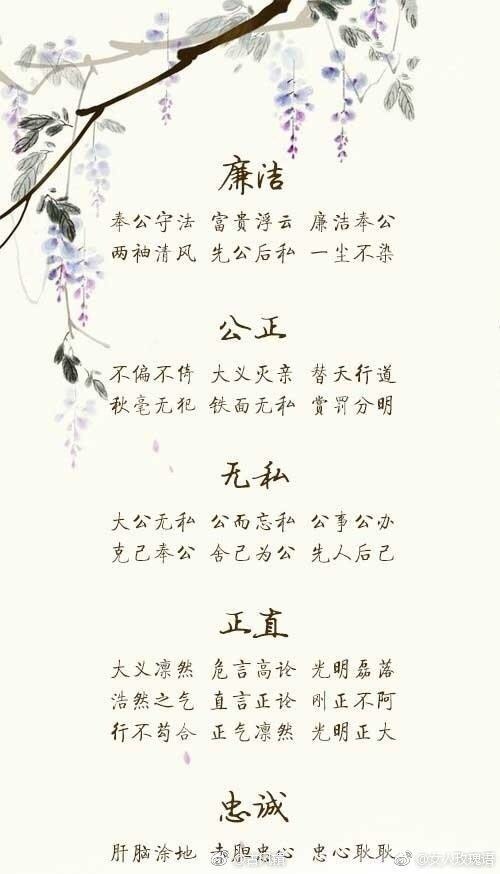 廉洁
奉公守法 富贵浮云 廉洁奉公
两袖清风 先公后私 一尘不染
公正
不偏不倚 大义灭亲 替天行道
秋毫无犯 铁面无私 赏罚分明
无私
大公无私 公而忘私 公事公办
克己奉公 舍己为公 先人后己
正直
大义凛然 危言高论 光明磊落
浩然之气 直言正论 刚正不阿
行不苟合 正气凛然 光明正大
忠诚
肝脑涂地 赤胆忠心 忠心耿耿
@女人玫瑰语